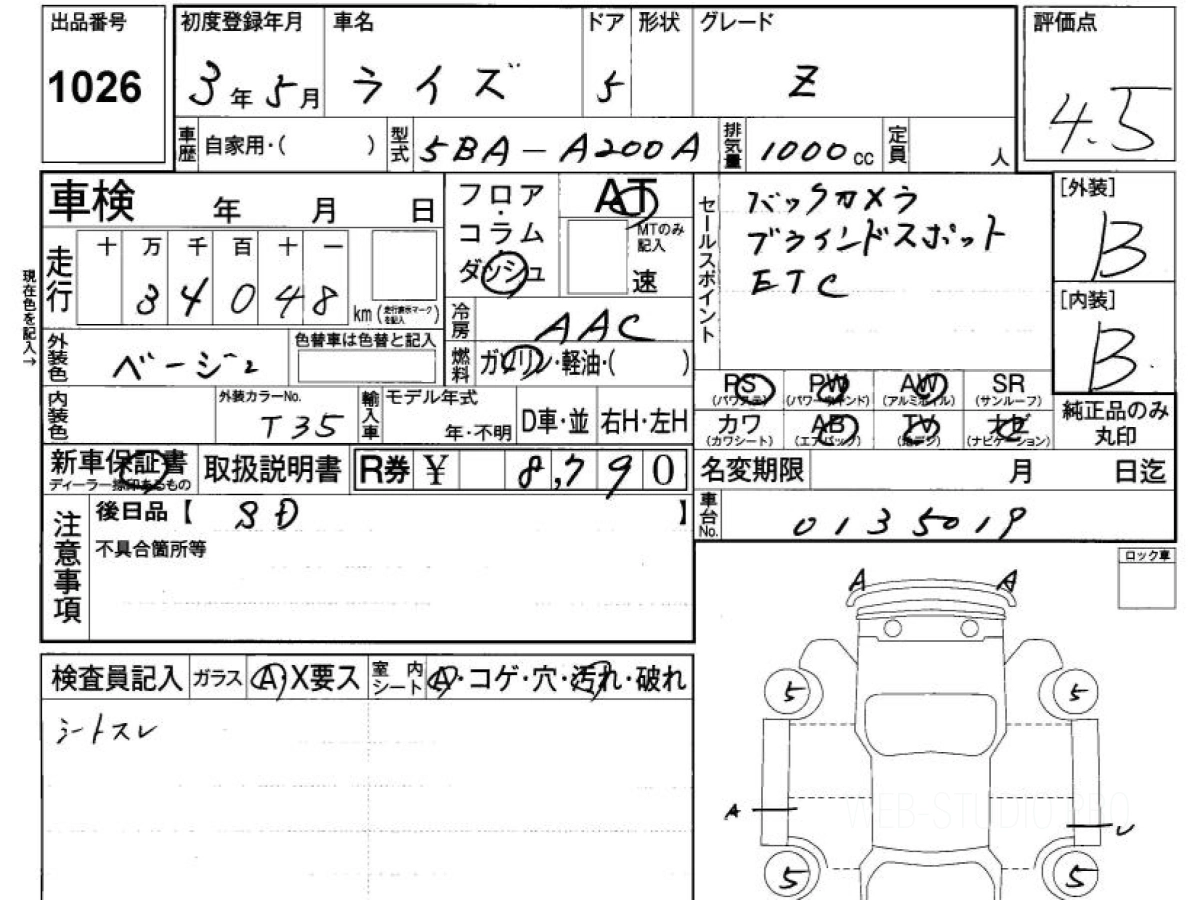 出品番号
1026
初度登録年月
3年5月
車名
ライズ
ドア
5
形状
グレード
Z
評価点
4.5
車歴
自家用・( )
型式
5BA-A200A
排気量
1000cc
定員
人
車検 年 月 日
走行
十 万 千 百 十 一
3 4 0 4 8
km(走行表示マークを記入)
現在色を記入→
外装色
ベージュ
色替車は色替と記入
フロア・コラム
ダッシュ
AT
MTのみ記入
速
冷房
AAC
燃料
ガソリン・軽油・( )
セールスポイント
バックカメラ
ブラインドスポット
ETC
[外装]
B
[内装]
B
純正品のみ
丸印
内装色
外装カラーNo.
T35
輸入車
モデル年式
年・不明
D車・並
右H・左H
PS
(パワステ)
PW
(パワーウインド)
AW
(アルミホイル)
SR
(サンルーフ)
カワ
(カワシート)
AB
(エアバック)
TV
(地デジ)
ナビ
(ナビゲーション)
新車保証書
ディーラー捺印あるもの
取扱説明書
R券 ¥ 8,790
名変期限 月 日迄
注意事項
後日品【 SD 】
不具合箇所等
車台No.
0135019
ロック車
A A
検査員記入
ガラス
A・X要ス
室内シート
A・コゲ・穴・汚れ・破れ
シートスレ
5 5
A U
5 5
WEB-STUDIO PRO